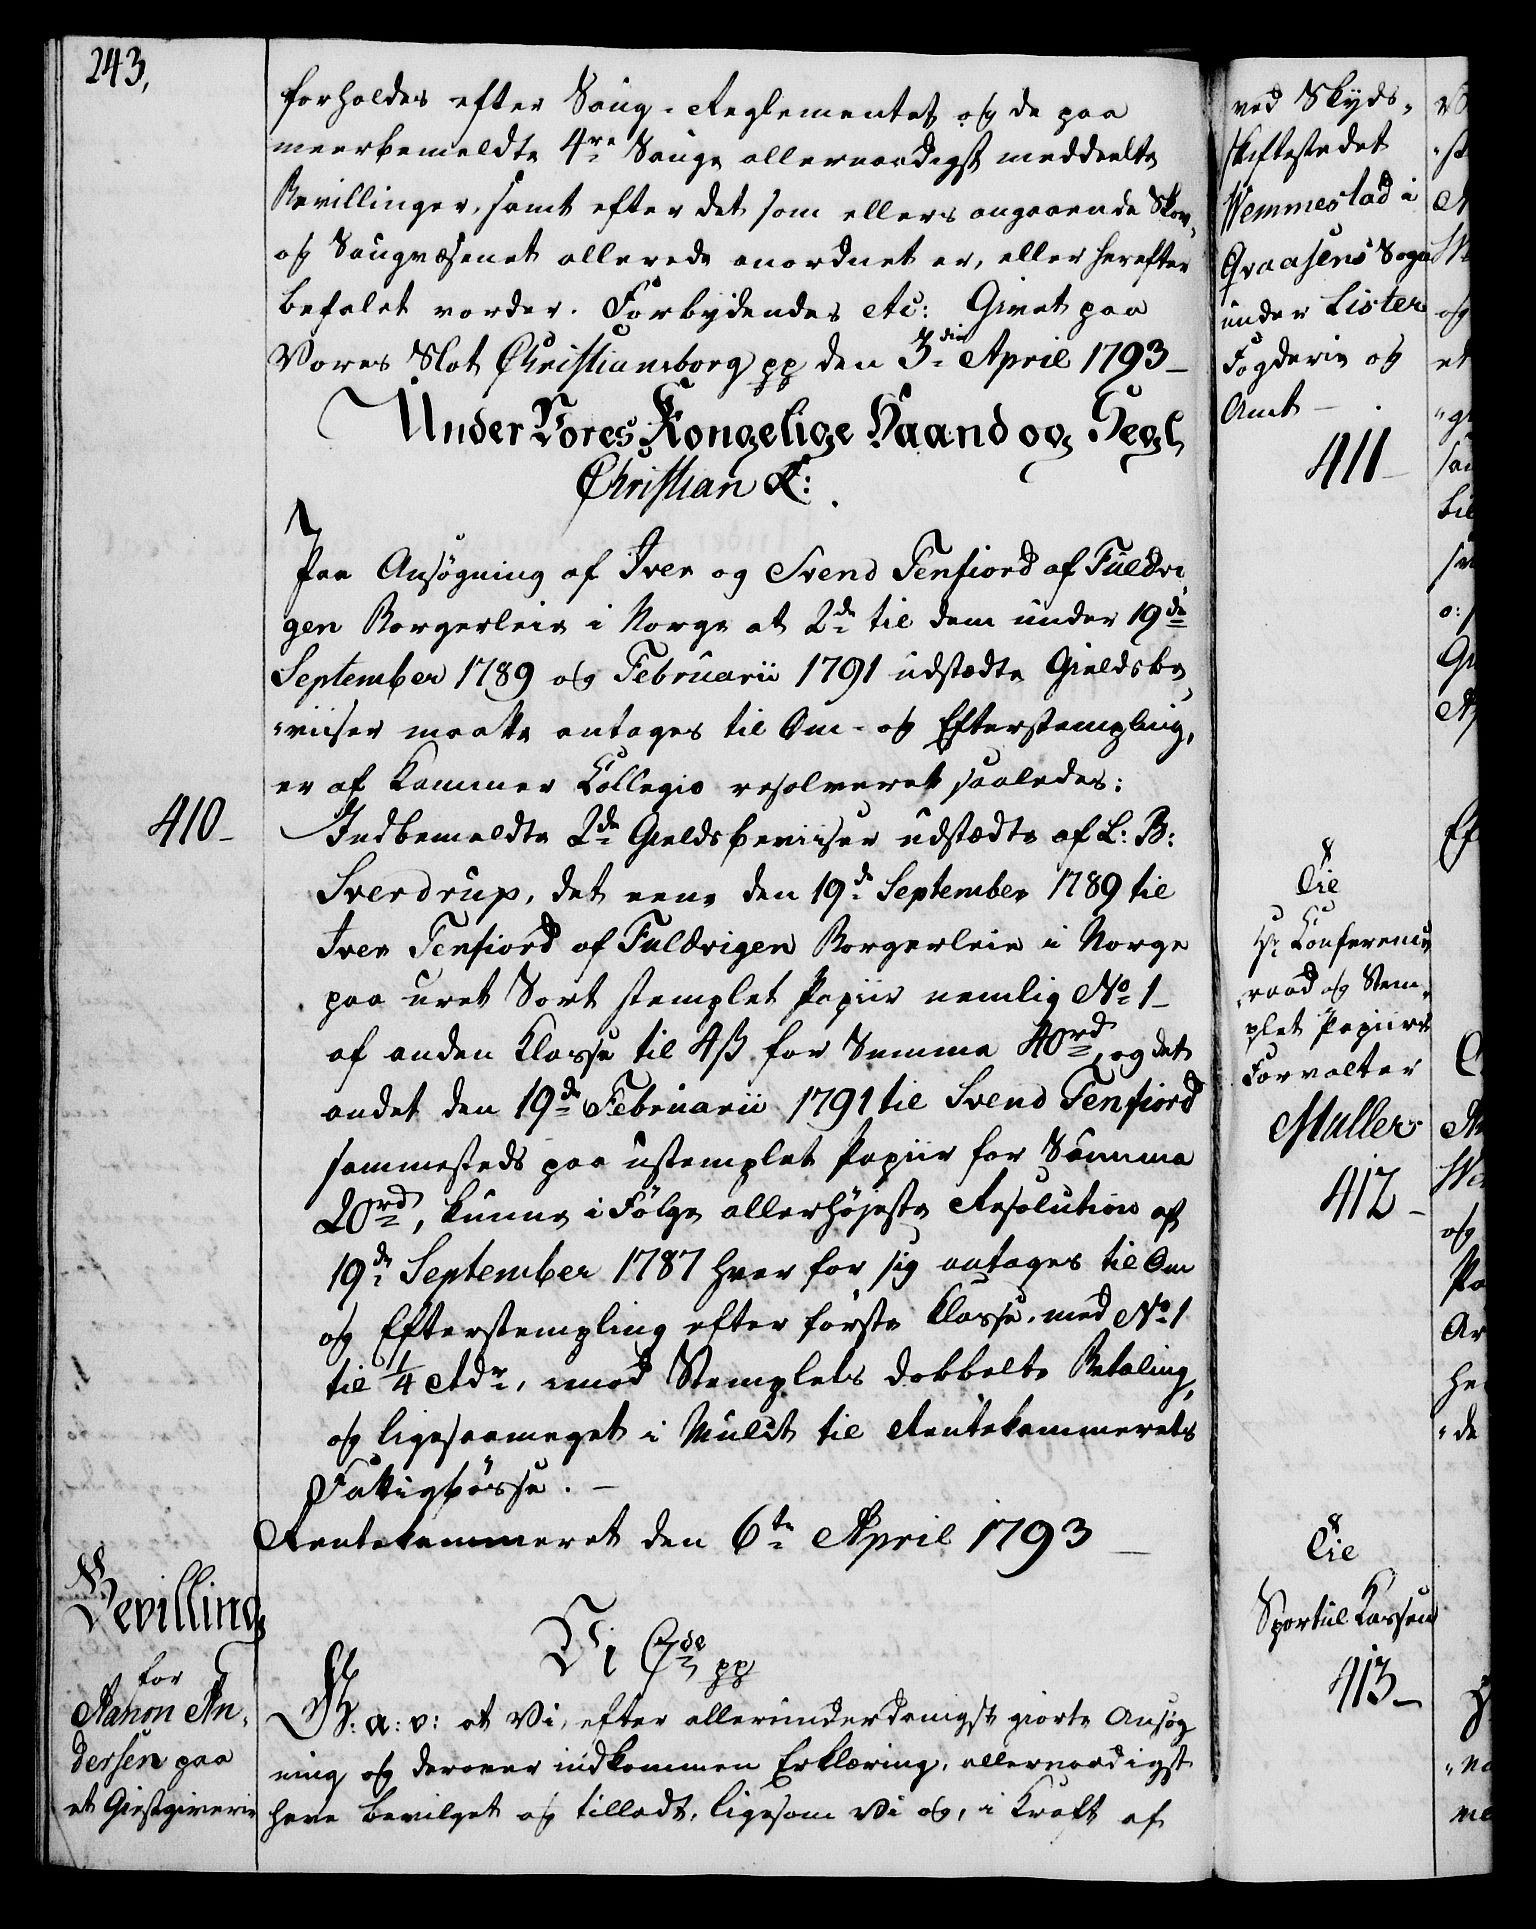 243,
forholdes efter Saug-Reglementet og de paa
meerbemeldte 4re Sauge allernaadigst meddeelte
Bevillinger, samt efter det som ellers angaaende Skov-
og Saugvæsenet allerede anordnet er, eller herefter
befalet vorder. Forbydendes etc: Givet paa
Vores Slot Christiansborg pp den 3die April 1793 —
Under Vores Kongelige Haand og Segl
Christian R:
Paa Ansøgning af Iver og Svend Tenfiord af Fuldvi
gen Borgerleie i Norge at 2de til dem under 19de
September 1789 og Februarii 1791 udstædte Gieldsbe
"viiser maatte antages til Om- og Efterstempling,
er af Kammer Collegio resolveret saaledes:
410 —
Indbemeldte 2de Gieldsbeviiser udstædte af L: B:
Sverdrup, det eene den 19de September 1789 til
Iver Tenfiord af Fuldvigen Borgerleie i Norge
paa uret Sort stemplet Papiir nemlig No 1 —
af anden Klasse til 4ß for Summa 40rd, og det
andet den 19de Februarii 1791 til Svend Tenfiord
sammesteds paa ustemplet Papiir for Summa
20rd, kunne i Følge allerhøjeste Resolution af
19de September 1787 hver for sig antages til Om
og Efterstempling efter første Klasse, med No 1
til 1/4 Rdr, imod Stemplets dobbelte Betaling,
og ligesaameget i Mulct til Rentekammerets
Fattigbøsse. —
Rentekammeret den 6te April 1793 —
Bevilling
for
Aanon An-
dersen paa
et Giestgiverie
Vi C7de pp
G: a: v: at Vi, efter allerunderdanigst giorte Ansøg
ning og derover indkommen Erklæring, allernaadigst
have bevilget og tilladt, ligesom Vi og, i Kraft af
ved Skyds-
skiftestedet
Wemmestad i
Qvaasens Sogn
under Lister
Fogderie og
Amt —
411 —
Til
Hr Conferens
raad og Stem-
plet Papiirs
Forvalter
Muller
412 —
Til
Sportul Kassen
413 —